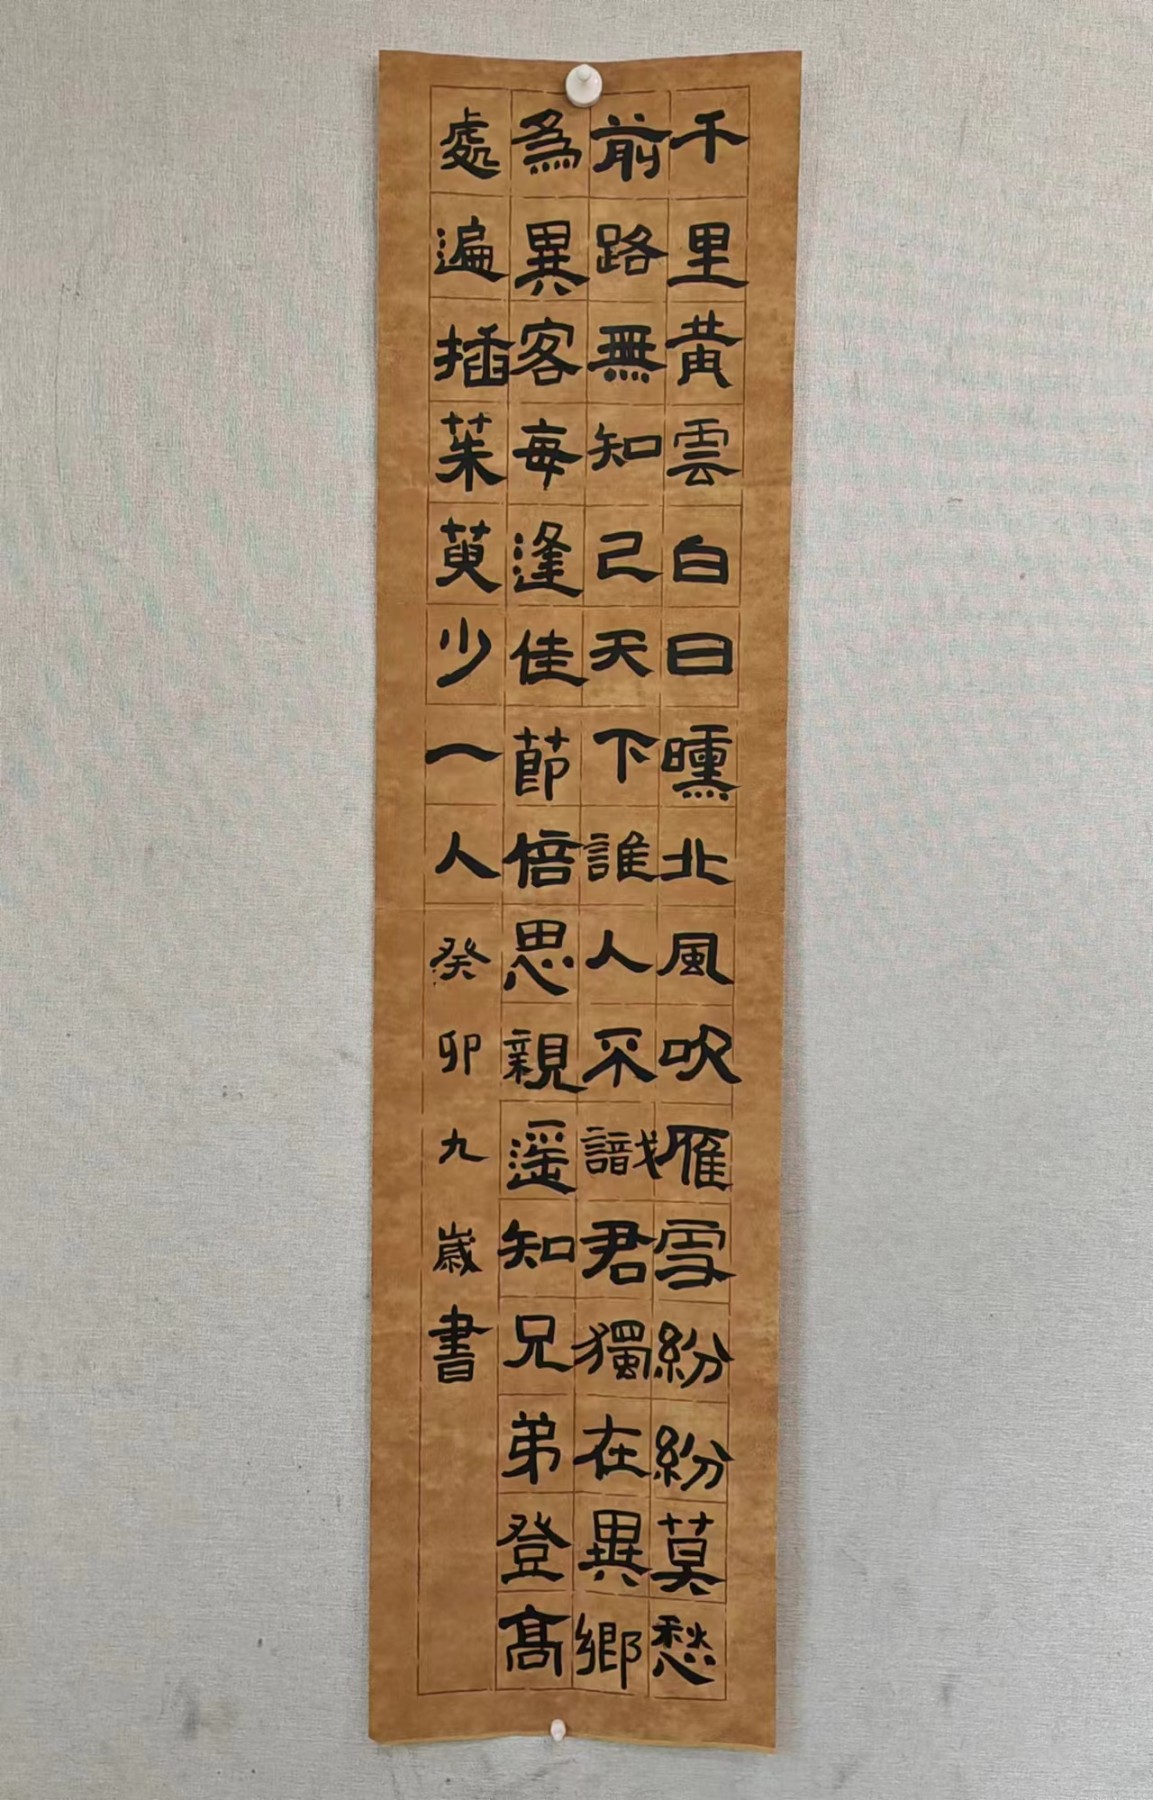 千里黄雲白日曛北風吹雁雪紛紛莫愁
前路無知己天下誰人不識君獨在異鄉
為異客每逢佳節倍思親遥知兄弟登高
處遍插茱萸少一人癸卯九歲書